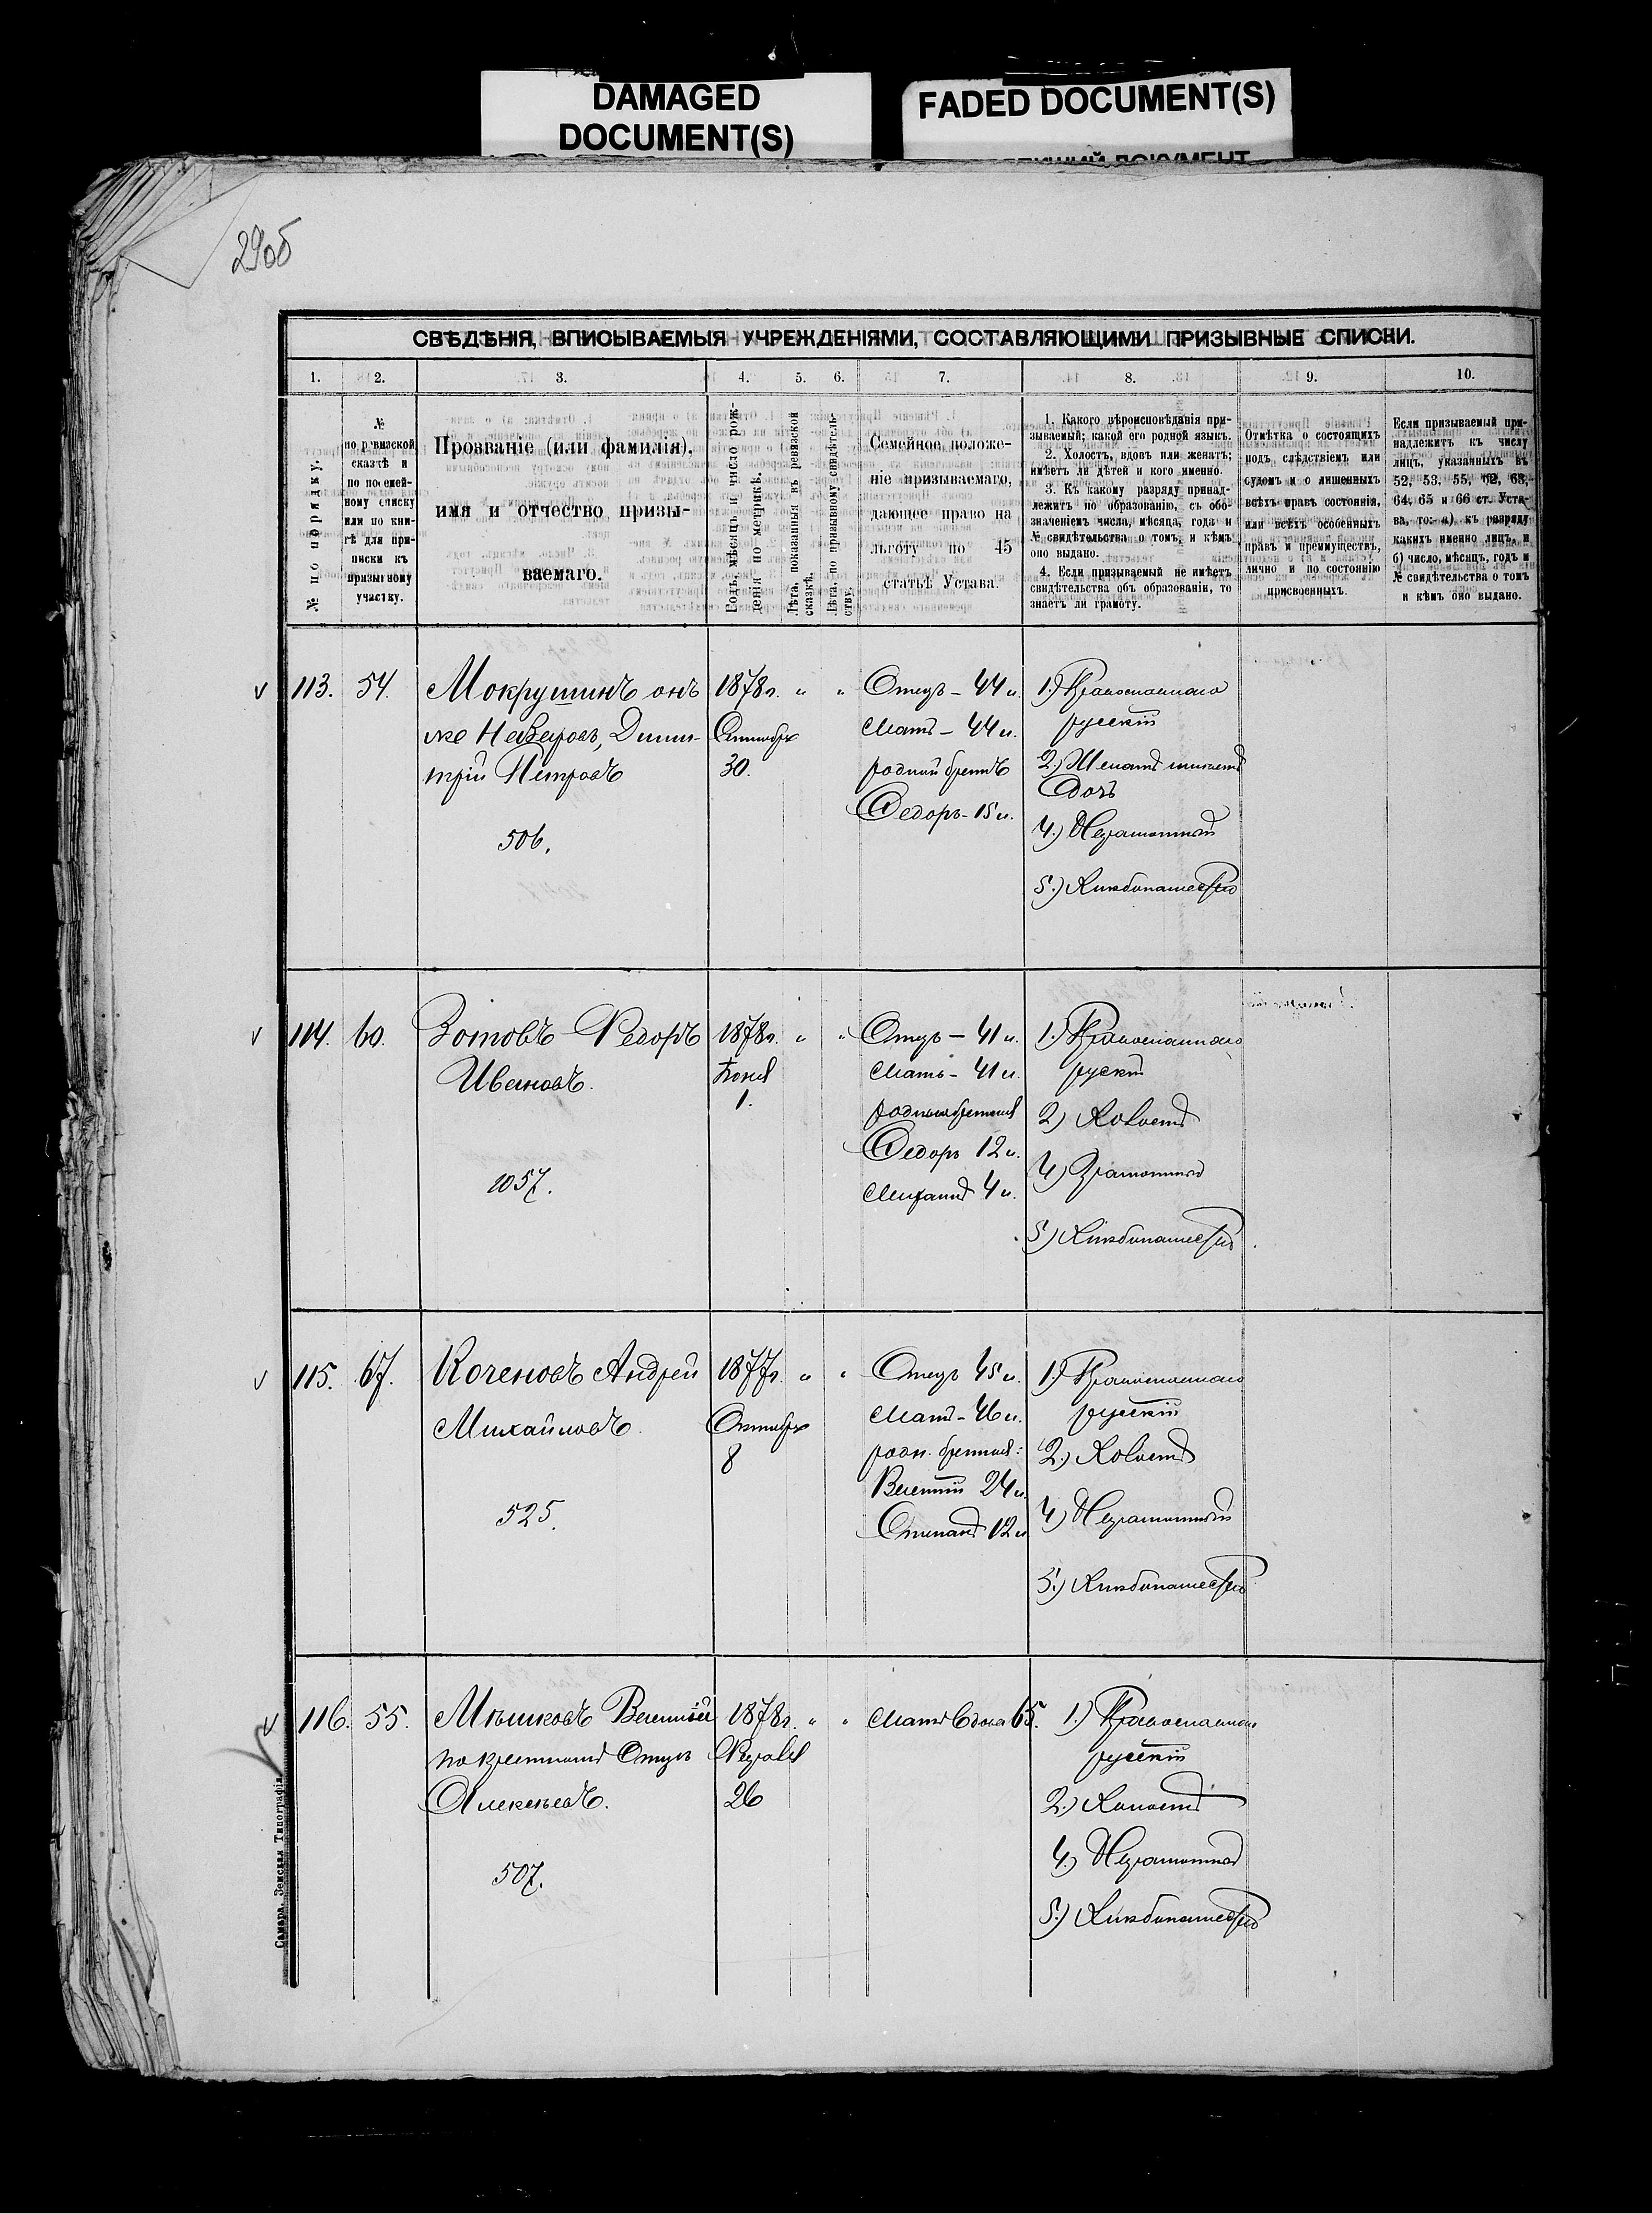 DAMAGED
DOCUMENT(S)
FADED DOCUMENT(S)
29об
СВѢДѢНІЯ, ВПИСЫВАЕМЫЯ УЧРЕЖДЕНІЯМИ, СОСТАВЛЯЮЩИМИ ПРИЗЫВНЫЕ СПИСКИ.
1. 2. 3. 4. 5. 6. 7. 8. 9. 10.
№ по порядку.
№
по ревизской
сказкѣ и
по посемей-
ному списку
или по кни-
гѣ для при-
писки къ
призывному
участку.
Прозваніе (или фамилія),
имя и отчество призы-
ваемаго.
Годъ, мѣсяцъ и число рож-
денія по метрикѣ.
Лѣта, показанныя въ ревизской
сказкѣ.
Лѣта, по призывному свидѣтель-
ству.
Семейное положе-
ніе призываемаго,
дающее право на
льготу по 45
статьѣ Устава.
1. Какого вѣроисповѣданія при-
зываемый; какой его родной языкъ.
2. Холостъ, вдовъ или женатъ;
имѣетъ ли дѣтей и кого именно.
3. Къ какому разряду принад-
лежитъ по образованію, съ обо-
значеніемъ числа, мѣсяца, года и
№ свидѣтельства о томъ, и кѣмъ
оно выдано.
4. Если призываемый не имѣетъ
свидѣтельства объ образованіи, то
знаетъ ли грамоту.
Отмѣтка о состоящихъ
подъ слѣдствіемъ или
судомъ и о лишенныхъ
всѣхъ правъ состоянія,
или всѣхъ особенныхъ
правъ и преимуществъ,
лично и по состоянію
присвоенныхъ.
Если призываемый при-
надлежитъ къ числу
лицъ, указанныхъ въ
52, 53, 55, 62, 63,
64, 65 и 66 ст. Уста-
ва, то: а) къ разряду
какихъ именно лицъ, и
б) число, мѣсяцъ, годъ и
№ свидѣтельства о томъ
и кѣмъ оно выдано.
113. 54.
Мокрушинъ онъ
же Назаровъ, Дими-
трій Петровъ
506.
1878г. " "
30.
Отцъ - 44 л.
Мать - 44 л.
родной братъ
Федоръ - 15 л.
1.) Православнаго
русскій
2.) Женатъ имѣетъ
дочь
4.) Неграмотный
5.)
114. 60.
Зотовъ Федоръ
Ивановъ.
1057.
1878г. " "
Іюня
1.
Отцъ - 41 л.
Мать - 41 л.
родные братья
Федоръ 12 л.
Михаилъ 4 л.
1.) Православнаго
рускій
2) Холостъ
4) Грамотный
5)
115. 67.
Коченовъ Андрей
Михайловъ.
525.
1877г. " "
Октября
8
Отцъ 45 л.
Мать - 46 л.
родн. братья:
Василій 24 л.
Степанъ 12 л.
1.) Православнаго
русскій
2.) Холостъ
4) Неграмотный
5.)
116. 55.
Мѣшковъ Василій
по крестному Отцу
Алексѣевъ.
507.
1878г. " "
Февраля
26
Мать вдова 65.
1.) Православнаго
русскій
2.) Холостъ
4.) Неграмотный
5.)
Самара, Земская Типографія.